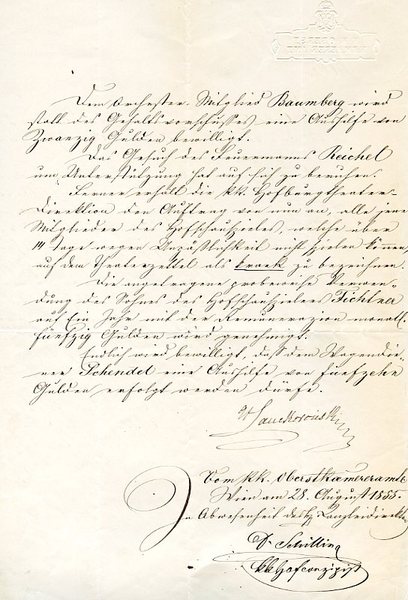 Dem Orchester-Mitglied Baumberg wird
statt des Gehaltsvorschusses eine Aushilfe von
Zwanzig Gulden bewilligt.
Das Gesuch des Feuermanns Reichel
um Unterstützung hat auf sich zu beruhen.
Ferner erhält die kk. Hofburgtheater-
Direktion den Auftrag von nun an, alle jene
Mitglieder des Hofschauspieles, welche über
14 Tage wegen Unpäßlichkeit nicht spielen können,
auf dem Theaterzettel als krank zu bezeichnen.
Die angetragene probeweise Verwen-
dung des Sohnes des Hofschauspielers Fichtner
auf Ein Jahr mit der Remunerazion monatl.
fünfzig Gulden wird genehmigt.
Endlich wird bewilligt, daß dem Wagendie-
ner Schindel eine Aushilfe von fünfzehn
Gulden, erfolgt werden dürfe.
Lanckoroński
Vom kk. Oberstkämmereramte
Wien am 28. August 1855.
In Abwesenheit des Kanzleidirektors
Schilling
kk Hofconzipist